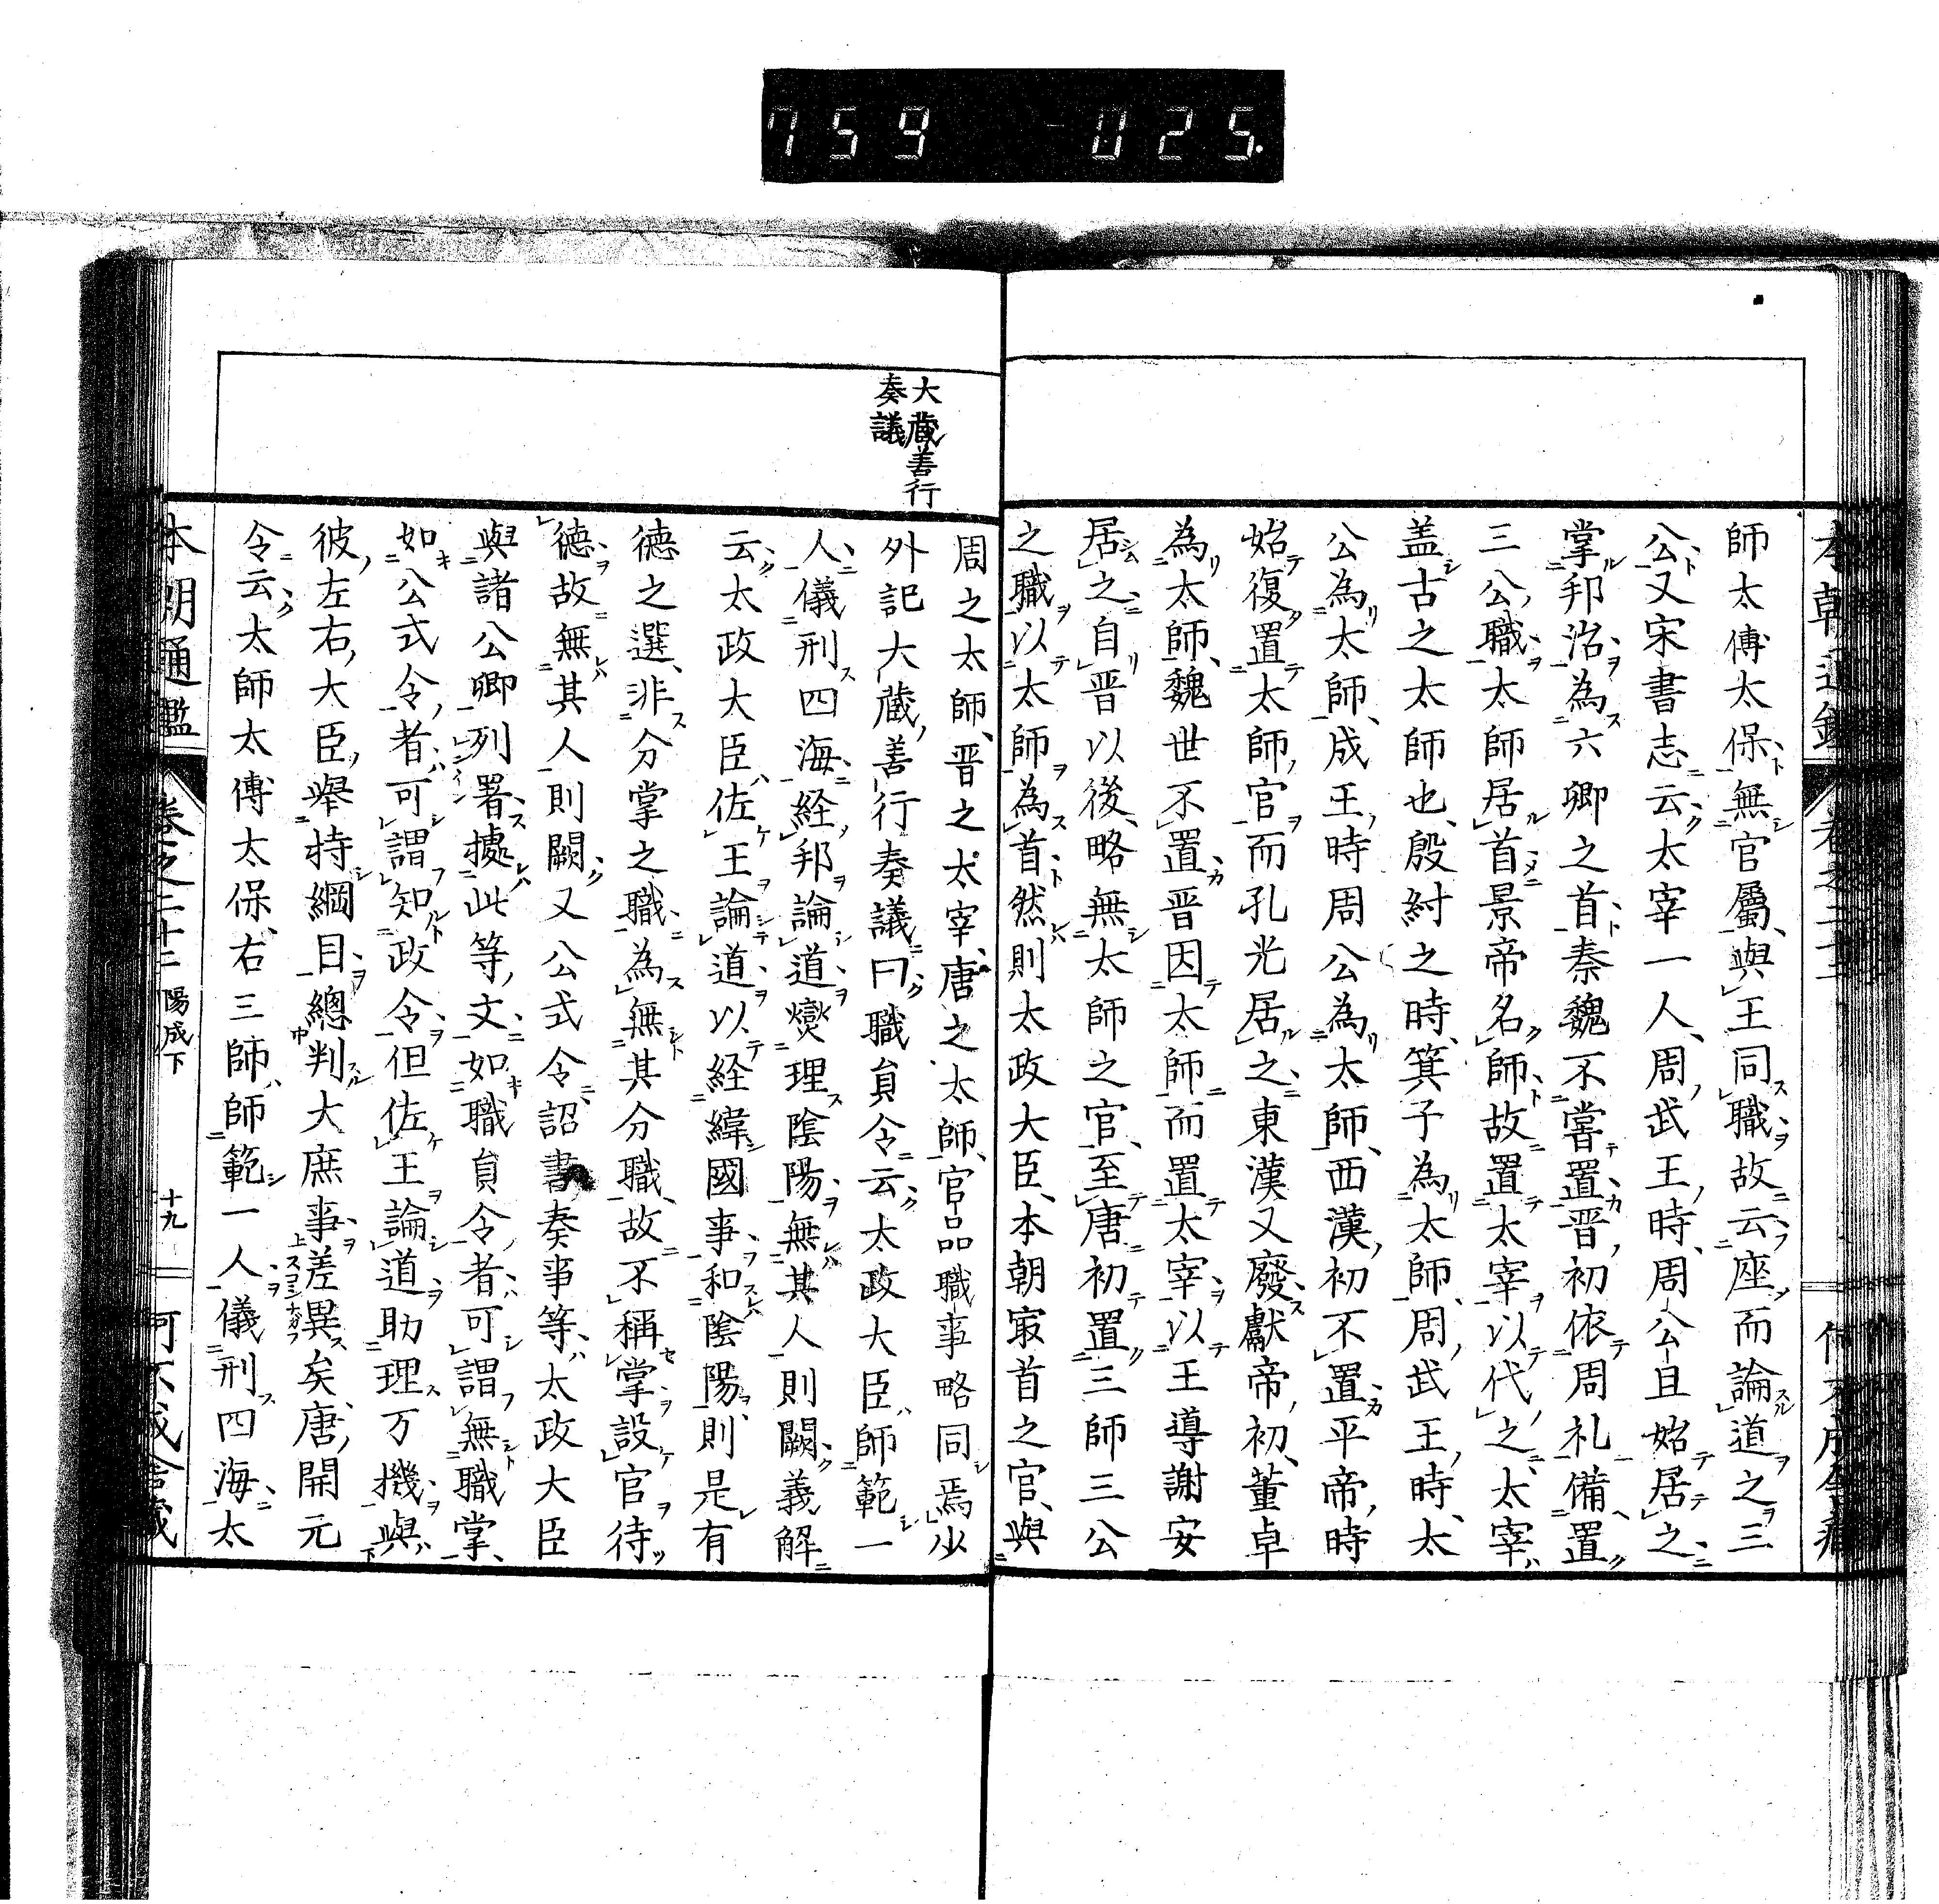 759 025.
師太傅太保無官屬與王同職故云座而論道之三
公又宋書志云太宰一人周武王時周公旦始居之
掌邦治為六卿之首秦魏不嘗置晋初依周礼備置
三公職太師居首景帝名師故置太宰以代之太宰
盖古之太師也殷紂之時箕子為太師周武王時太
公為太師成王時周公為太師西漢初不置平帝時
始復置太師官而孔光居之東漢又廢献帝初董卓
為太師魏世不置晋因太師而置太宰以王導謝安
居之自晋以後略無太師之官至唐初置三師三公
之職以太師為首然則太政大臣本朝㝡首之官與
大蔵善行
奏議
周之太師晋之太宰唐之太師官品職事略同焉少
外記大蔵善行奏議曰職員令云太政大臣師範一
人儀刑四海経邦論道燮理陰陽無其人則闕義解
云太政大臣佐王論道以経緯國事和陰陽則是有
德之選非分掌之職為無其分職故不稱掌設官待
德故無其人則闕又公式令詔書奏事等太政大臣
與諸公卿列署據此等文如職員令者可謂無職掌
如公式令者可謂知政令但佐王論道助理万機與
彼左右大臣舉持綱目總判大庶事差異矣唐開元
令云太師太傅太保右三師師範一人儀刑四海太
本朝通鑑 巻之二十二 陽成下 十九